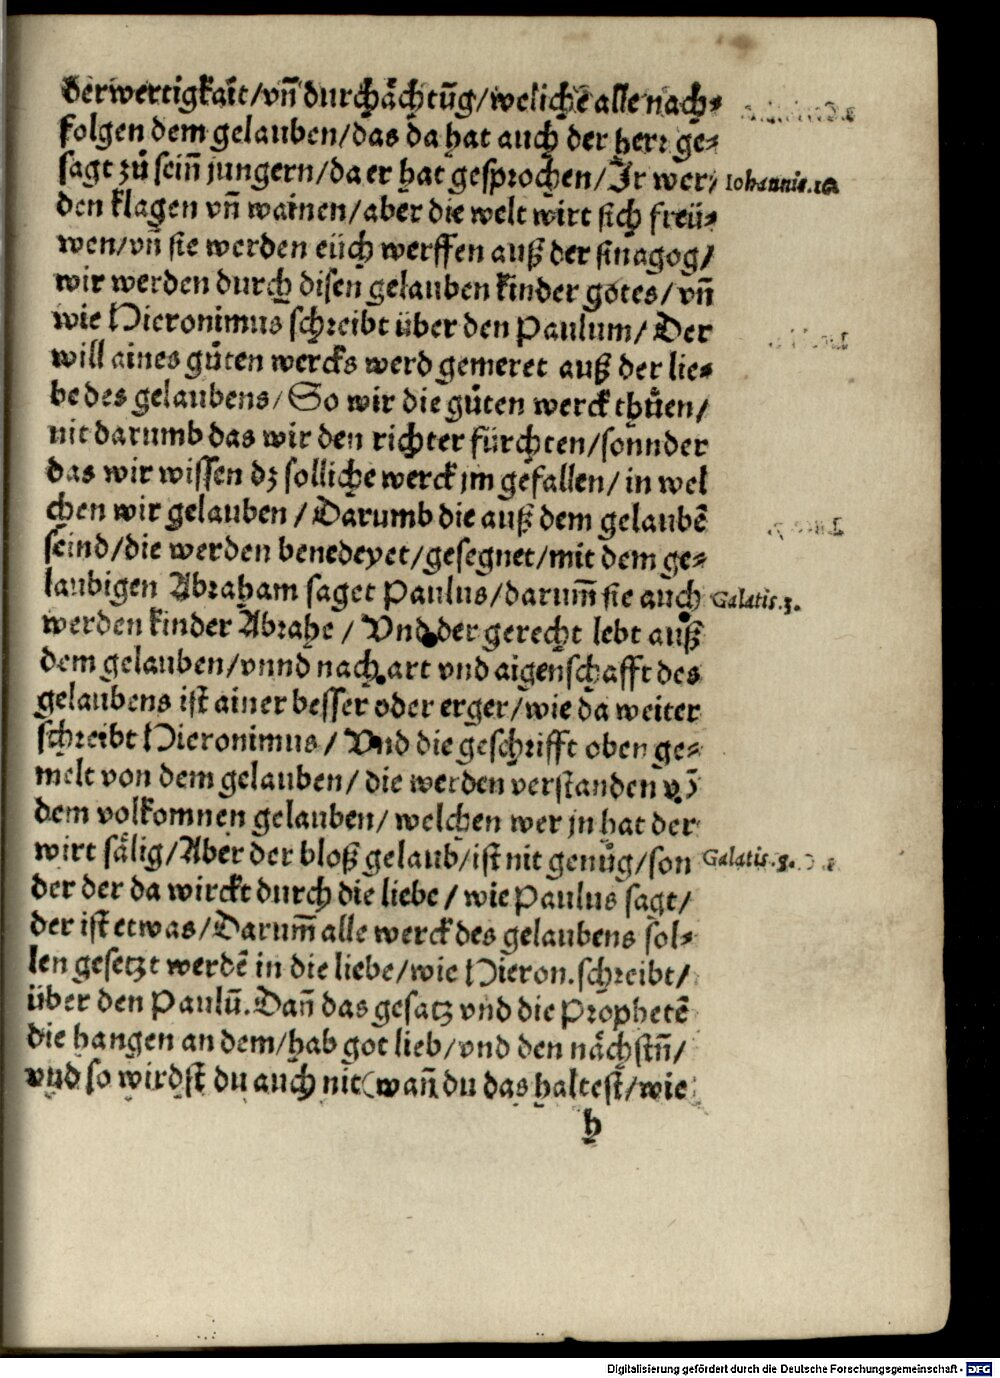 derwertigkait/vn̄ durchåchtūg/weliche alle nach⸗
folgen dem gelauben/das da hat auch der herr ge⸗
sagt zů sein̄ jungern/da er hat gesprochen/Ir wer/ Iohannis.16.
den klagen vn̄ wainen/aber die welt wirt sich freü⸗
wen/vn̄ sie werden eüch werffen auß der sinagog/
wir werden durch disen gelauben kinder gotes/vn̄
wie Hieronimus schreibt über den Paulum/Der
will aines gůten wercks werd gemeret auß der lie⸗
be des gelaubens/So wir die gůten werck thůen/
nit darumb das wir den richter fürchten/sonnder
das wir wissen dz solliche werck jm gefallen/in wel
chen wir gelauben/Darumb die auß dem gelaubē
seind/die werden benedeyet/gesegnet/mit dem ge⸗
laubigen Abraham saget Paulus/darum̄ sie auch Galatis.3.
werden kinder Abrahe/Vnd der gerecht lebt auß
dem gelauben/vnnd nach art vnd aigenschafft des
gelaubens ist ainer besser oder erger/wie da weiter
schreibt Hieronimus/Vnd die geschrifft oben ge⸗
melt von dem gelauben/die werden verstanden vō
dem volkomnen gelauben/welchen wer jn hat der
wirt sålig/Aber der bloß gelaub/ist nit genůg/son Galatis.3.
der der da wirckt durch die liebe/wie Paulus sagt/
der ist etwas/Darum̄ alle werck des gelaubens sol⸗
len gesetzt werdē in die liebe/wie Hieron.schreibt/
über den Paulū.Dan̄ das gesatz vnd die Prophetē
die hangen an dem/hab got lieb/vnd den nächstn̄/
vnd so wirdst du auch nit(wan̄ du das haltest/wie
h
Digitalisierung gefördert durch die Deutsche Forschungsgemeinschaft - DFG